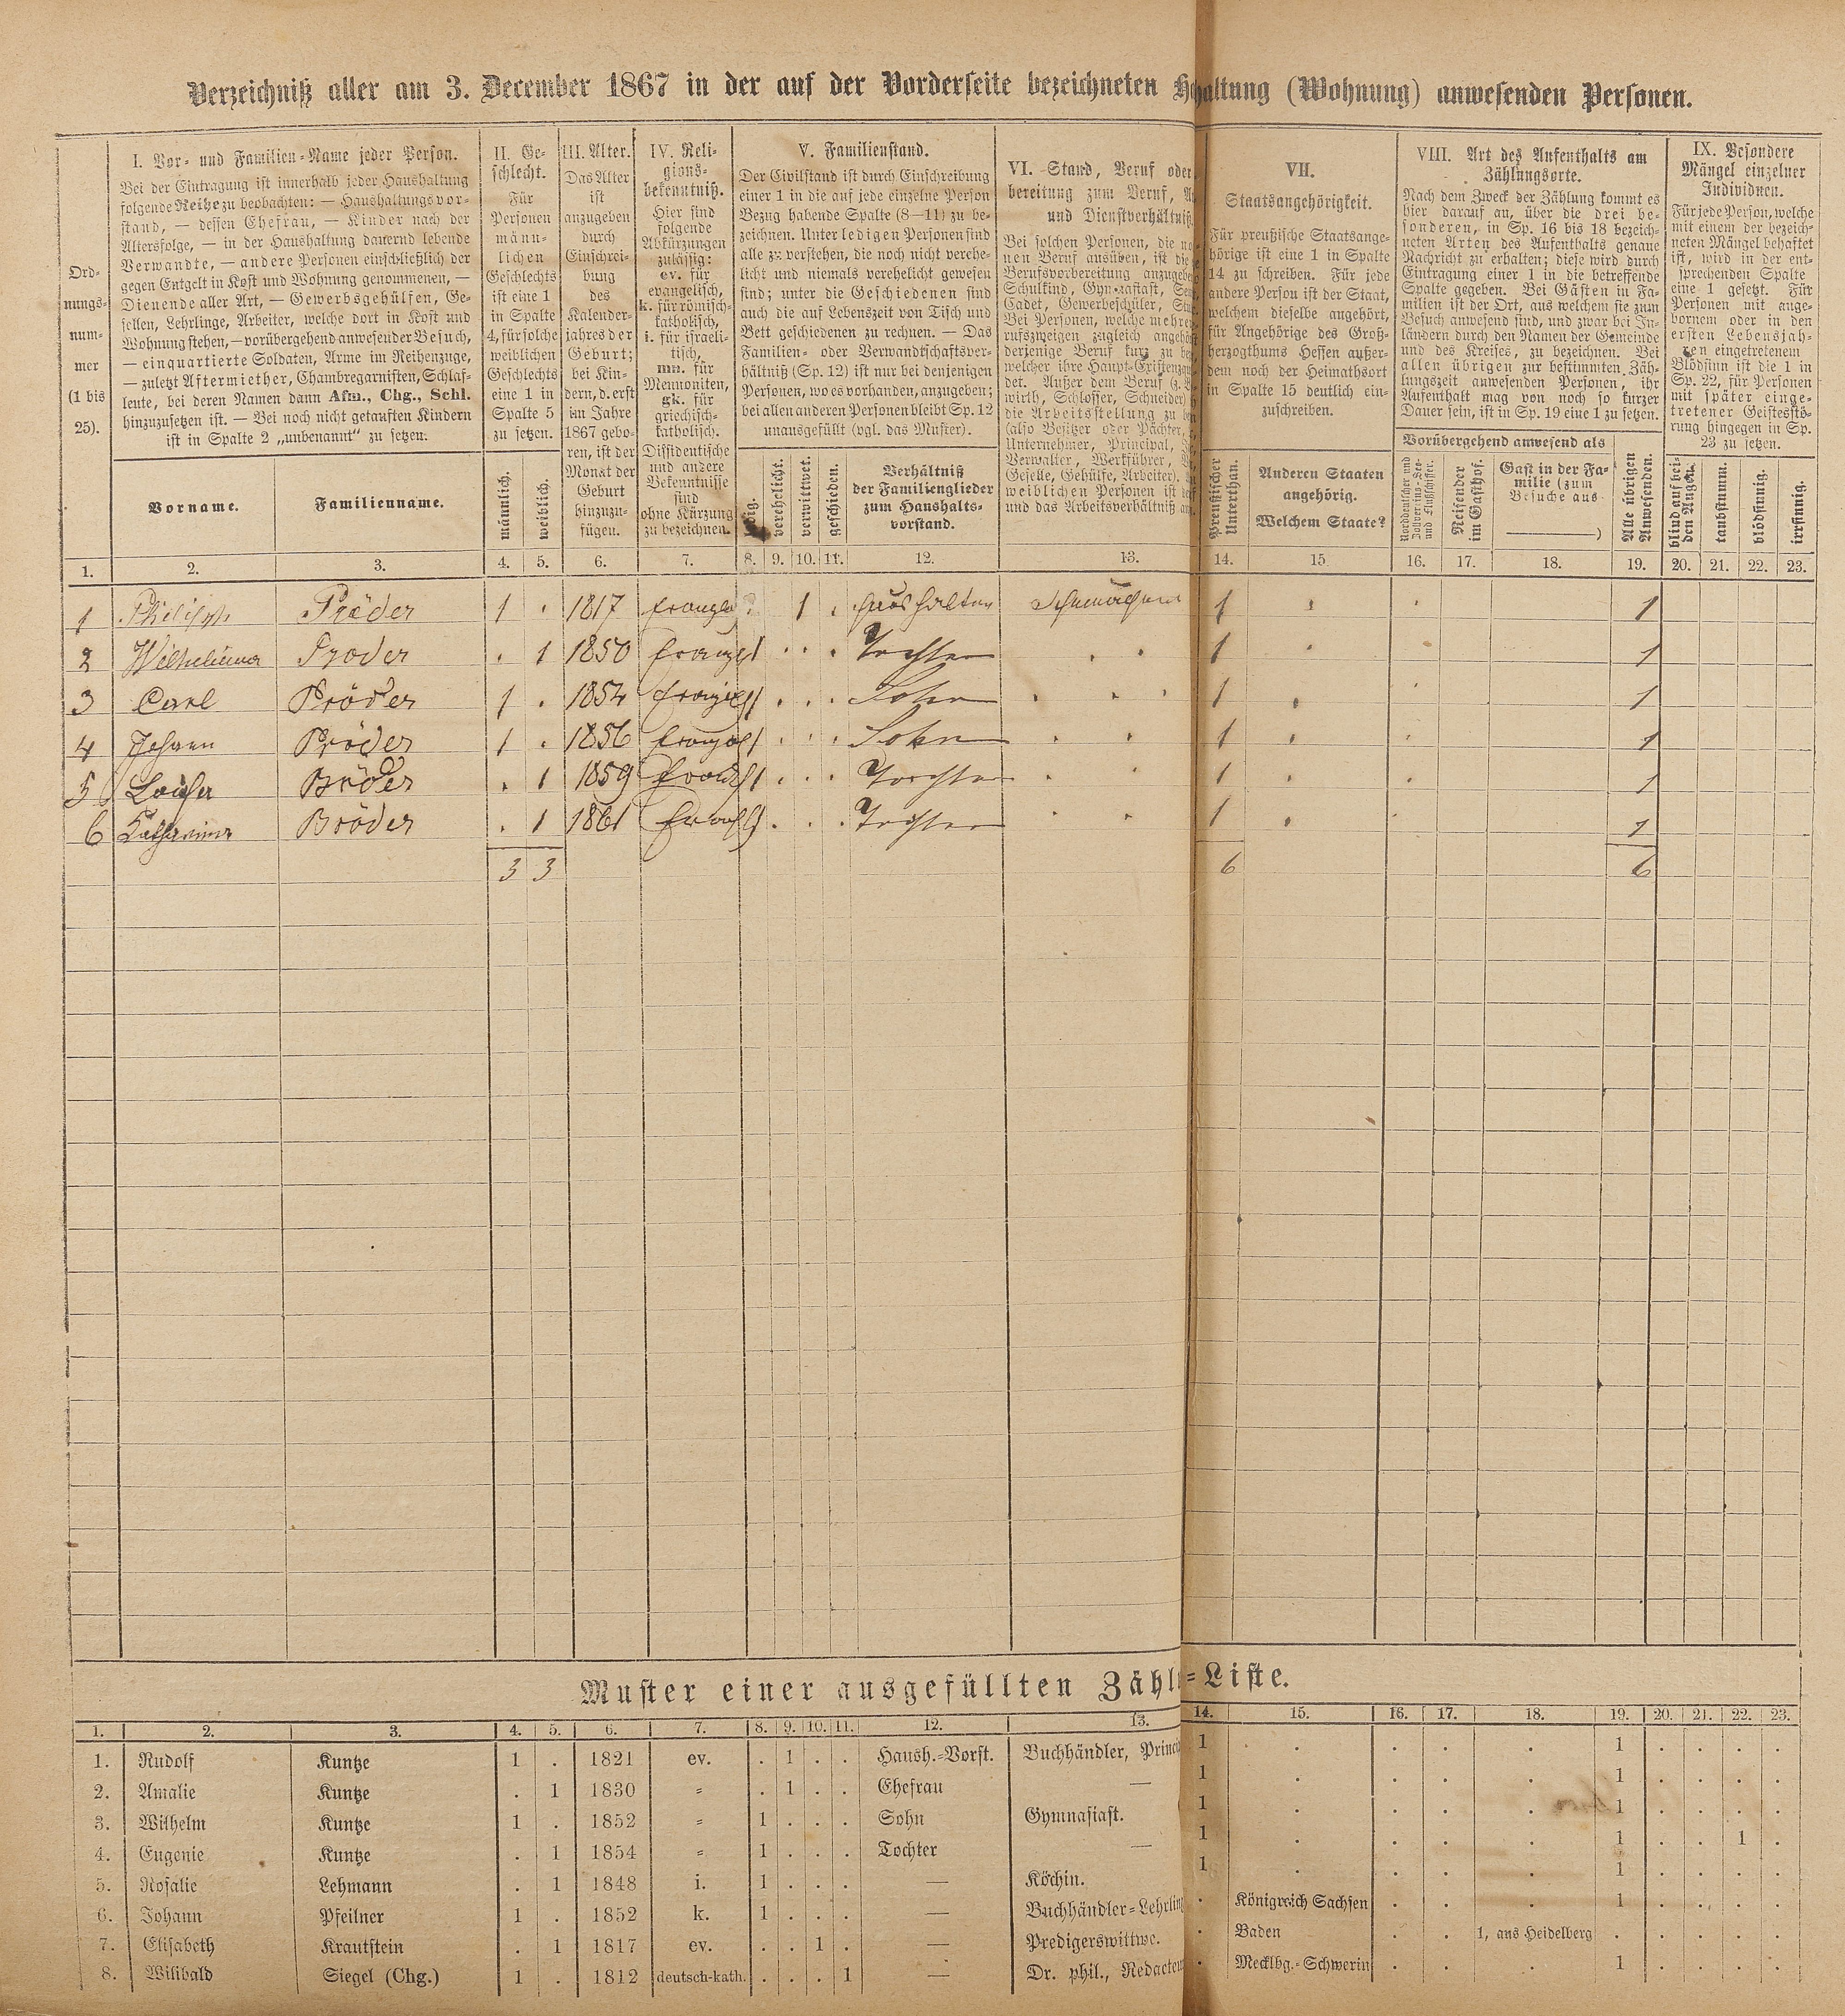 Verzeichniß aller am 3. December 1867 in der auf der Vorderseite bezeichneten Hhaltung (Wohnung) anwesenden Personen.
Ord-
nungs-
num-
mer
(1 bis
25).
I. Vor- und Familien-Name jeder Person.
Bei der Eintragung ist innerhalb jeder Haushaltung
folgende Reihe zu beobachten: — Haushaltungsvor-
stand, — dessen Ehefrau, — Kinder nach der
Altersfolge, — in der Haushaltung dauernd lebende
Verwandte, — andere Personen einschließlich der
gegen Entgelt in Kost und Wohnung genommenen, —
Dienende aller Art, — Gewerbsgehülfen, Ge-
sellen, Lehrlinge, Arbeiter, welche dort in Kost und
Wohnung stehen, — vorübergehend anwesender Besuch,
— einquartierte Soldaten, Arme im Reihenzuge,
— zuletzt Aftermiether, Chambregarnisten, Schlaf-
leute, bei deren Namen dann Afm., Chg., Schl.
hinzuzusetzen ist. — Bei noch nicht getauften Kindern
ist in Spalte 2 „unbenannt“ zu setzen.
Vorname. Familienname.
II. Ge-
schlecht.
Für
Personen
männ-
lichen
Geschlechts
ist eine 1
in Spalte
4, für solche
weiblichen
Geschlechts
eine 1 in
Spalte 5
zu setzen.
männlich. weiblich.
III. Alter.
Das Alter
ist
anzugeben
durch
Einschrei-
bung
des
Kalender-
jahres der
Geburt;
bei Kin-
dern, d. erst
im Jahre
1867 gebo-
ren, ist der
Monat der
Geburt
hinzuzu-
fügen.
IV. Reli-
gions-
bekenntniß.
Hier sind
folgende
Abkürzungen
zulässig:
ev. für
evangelisch,
k. für römisch-
katholisch,
i. für israeli-
tisch,
mn. für
Mennoniten,
gk. für
griechisch-
katholisch.
Dissidentische
und andere
Bekenntnisse
sind
ohne Kürzung
zu bezeichnen.
V. Familienstand.
Der Civilstand ist durch Einschreibung
einer 1 in die auf jede einzelne Person
Bezug habende Spalte (8—11) zu be-
zeichnen. Unter ledigen Personen sind
alle zu verstehen, die noch nicht verehe-
licht und niemals verehelicht gewesen
sind; unter die Geschiedenen sind
auch die auf Lebenszeit von Tisch und
Bett geschiedenen zu rechnen. — Das
Familien- oder Verwandtschaftsver-
hältniß (Sp. 12) ist nur bei denjenigen
Personen, wo es vorhanden, anzugeben;
bei allen anderen Personen bleibt Sp. 12
unausgefüllt (vgl. das Muster).
verehelicht. verwittwet. geschieden.
Verhältniß
der Familienglieder
zum Haushalts-
vorstand.
VI. Stand, Beruf oder
bereitung zum Beruf,
und Dienstverhältniß
Bei solchen Personen, die
nen Beruf ausüben, ist die
Berufsvorbereitung anzugeben
Schulkind, Gymnasiast,
Cadet, Gewerbeschüler,
Bei Personen, welche mehre
rufszweigen zugleich angehö
derjenige Beruf kurz zu
welcher ihre Haupt-Existenz
det. Außer dem Beruf
wirth, Schlosser, Schneider)
die Arbeitsstellung zu
(also Besitzer oder Pächter,
Unternehmer, Principal,
Verwalter, Werkführer,
Geselle, Gehülfe, Arbeiter).
weiblichen Personen ist
und das Arbeitsverhältniß
VII.
Staatsangehörigkeit.
Für preußische Staatsange-
hörige ist eine 1 in Spalte
14 zu schreiben. Für jede
andere Person ist der Staat,
welchem dieselbe angehört,
für Angehörige des Groß-
herzogthums Hessen außer-
dem noch der Heimathsort
in Spalte 15 deutlich ein-
zuschreiben.
Preußischer
Unterthan.
Anderen Staaten
angehörig.
Welchem Staate?
VIII. Art des Aufenthalts am
Zählungsorte.
Nach dem Zweck der Zählung kommt es
hier darauf an, über die drei be-
sonderen, in Sp. 16 bis 18 bezeich-
neten Arten des Aufenthalts genaue
Nachricht zu erhalten; diese wird durch
Eintragung einer 1 in die betreffende
Spalte gegeben. Bei Gästen in Fa-
milien ist der Ort, aus welchem sie zum
Besuch anwesend sind, und zwar bei In-
ländern durch den Namen der Gemeinde
und des Kreises, zu bezeichnen. Bei
allen übrigen zur bestimmten Zäh-
lungszeit anwesenden Personen, ihr
Aufenthalt mag von noch so kurzer
Dauer sein, ist in Sp. 19 eine 1 zu setzen.
Vorübergehend anwesend als
Norddeutscher und
Zollvereins-See-
und Flußschiffer.
Reisender
im Gasthof.
Gast in der Fa-
milie (zum
Besuche aus
)
Alle übrigen
Anwesenden.
IX. Besondere
Mängel einzelner
Individuen.
Für jede Person, welche
mit einem der bezeich-
neten Mängel behaftet
ist, wird in der ent-
sprechenden Spalte
eine 1 gesetzt. Für
Personen mit ange-
bornem oder in den
ersten Lebensjah-
ren eingetretenem
Blödsinn ist die 1 in
Sp. 22, für Personen
mit später einge-
tretener Geistesstö-
rung hingegen in Sp.
23 zu setzen.
blind auf bei-
den Augen.
taubstumm. blödsinnig. irrsinnig.
1. 2. 3. 4. 5. 6. 7. 8. 9. 10. 11. 12. 13. 14. 15 16. 17. 18. 19. 20. 21. 22. 23.
1 Philiph Pröder 1 . 1817 1 . 1 1
2 Wilhelmina Proder . 1 1850 1 . . . Tochter 1 1
3 Carl Pröder 1 . 1854 1 . . . Sohn 1 1
4 Johann Pröder 1 . 1856 1 . . . Sohn 1 1
5 Louisa Bröder . 1 1859 1 . . . Tochter 1 1
6 Katharina Bröder . 1 1861 1 . . . Tochter 1 1
3 3 6 6
Muster einer ausgefüllten Zähl-Liste.
1. 2. 3. 4. 5. 6. 7. 8. 9. 10. 11. 12. 13. 14. 15. 16. 17. 18. 19. 20. 21. 22. 23.
1. Rudolf Kuntze 1 . 1821 ev. . 1 . . Haush.-Vorst. Buchhändler, Princi 1 . . . . 1 . . . .
2. Amalie Kuntze . 1 1830 „ . 1 . . Ehefrau — 1 . . . . 1 . . . .
3. Wilhelm Kuntze 1 . 1852 „ 1 . . . Sohn Gymnasiast. 1 . . . . 1 . . . .
4. Eugenie Kuntze . 1 1854 „ 1 . . . Tochter — 1 . . . . 1 . . 1 .
5. Rosalie Lehmann . 1 1848 i. 1 . . . — Köchin. 1 . . . . 1 . . . .
6. Johann Pfeilner 1 . 1852 k. 1 . . . — Buchhändler-Lehrling . Königreich Sachsen . . . 1 . . . .
7. Elisabeth Krautstein . 1 1817 ev. . . 1 . — Predigerswittwe. . Baden . . 1, aus Heidelberg . . . . .
8. Wilibald Siegel (Chg.) 1 . 1812 deutsch-kath. . . . 1 — Dr. phil., Redacteu . Mecklbg.-Schwerin . . . 1 . . . .